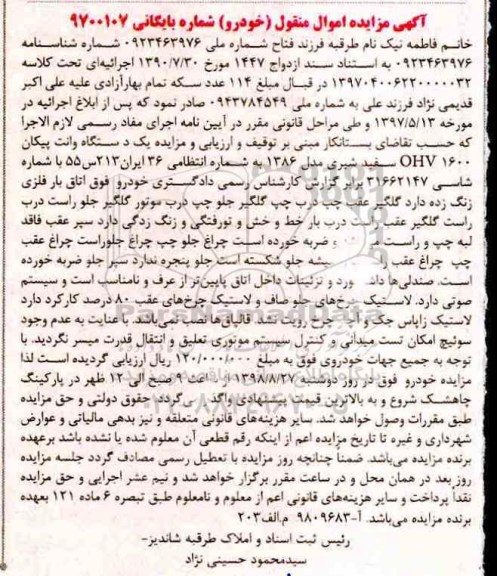 آگهی مزایده اموال منقول (خودرو) شماره بایگانی ۹۷۰۰۱۰۷
خانم فاطمه نیک نام طرقبه فرزند فتاح شماره ملی ۰۹۲۳۴۶۳۹۷۶ شماره شناسنامه
۰۹۲۳۴۶۳۹۷۶ به استناد سند ازدواج ۱۴۴۷ مورخ ۱۳۹۰/۷/۳۰ اجرائیه‌ای تحت کلاسه
۱۳۹۷۰۴۰۰۶۲۲۰۰۰۰۰۳۲ در قبال مبلغ ۱۱۴ عدد سکه تمام بهارآزادی علیه علی اکبر
قدیمی نژاد فرزند علی به شماره ملی ۰۹۴۳۷۸۴۵۴۹ صادر نمود که پس از ابلاغ اجرائیه در
مورخه ۱۳۹۷/۵/۱۳ و طی مراحل قانونی مقرر در آیین نامه اجرای مفاد رسمی لازم الاجرا
که حسب تقاضای بستانکار مبنی بر توقیف و ارزیابی و مزایده یک دستگاه وانت پیکان
۱۶۰۰ OHV سفید شیری مدل ۱۳۸۶ به شماره انتظامی ۳۶ ایران۲۱۳س۵۵ با شماره
شاسی ۳۱۶۶۲۱۴۷ برابر گزارش کارشناس رسمی دادگستری خودرو فوق اتاق بار فلزی
زنگ زده دارد گلگیر عقب چپ درب چپ گلگیر جلو چپ درب موتور گلگیر جلو راست درب
راست گلگیر عقب راست درب بار خط و خش و تورفتگی و زنگ زدگی دارد سپر عقب فاقد
لبه چپ و راست و ضربه خورده است چراغ جلو چپ چراغ جلوراست چراغ عقب
چپ چراغ عقب شیشه جلو شکسته است جلو پنجره ندارد سپر جلو ضربه خورده
است. صندلی‌ها و تزئینات داخل اتاق پایین‌تر از عرف و نامناسب است و سیستم
صوتی دارد. لاستیک چرخ‌های جلو صاف و لاستیک چرخ‌های عقب ۸۰ درصد کارکرد دارد
لاستیک زاپاس جک و آچار چرخ رویت نشد. قالپاق‌ها نصب نمی‌باشد. با عنایت به عدم وجود
سوئیچ امکان تست میدانی و کنترل سیستم موتوری تعلیق و انتقال قدرت میسر نگردید. با
توجه به جمیع جهات خودروی فوق به مبلغ ۱۲۰/۰۰۰/۰۰۰ ریال ارزیابی گردیده است لذا
مزایده خودرو فوق در روز دوشنبه ۱۳۹۸/۸/۲۷ از ساعت ۹ صبح الی ۱۲ ظهر در پارکینگ
چاهشک شروع و به بالاترین قیمت پیشنهادی واگذار می‌گردد. حقوق دولتی و حق مزایده
طبق مقررات وصول خواهد شد. سایر هزینه‌های قانونی متعلقه و نیز بدهی مالیاتی و عوارض
شهرداری و غیره تا تاریخ مزایده اعم از اینکه رقم قطعی آن معلوم شده یا نشده باشد برعهده
برنده مزایده می‌باشد. ضمناً چنانچه روز مزایده با تعطیل رسمی مصادف گردد جلسه مزایده
روز بعد در همان محل و در ساعت مقرر برگزار خواهد شد و نیم عشر اجرایی و حق مزایده
نقداً پرداخت و سایر هزینه‌های قانونی اعم از معلوم و نامعلوم طبق تبصره ۶ ماده ۱۲۱ بعهده
برنده مزایده می‌باشد. آ-۹۸۰۹۶۸۳ م.الف۲۰۳
رئیس ثبت اسناد و املاک طرقبه شاندیز-
سیدمحمود حسینی نژاد